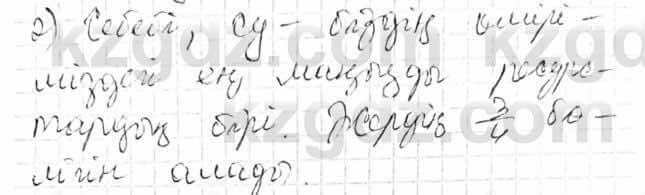 2) Себебі, су - біздің өмірі-
міздегі ең маңызды ресурс-
тардың бірі. Жердің 3/4 бө-
лігін алады.